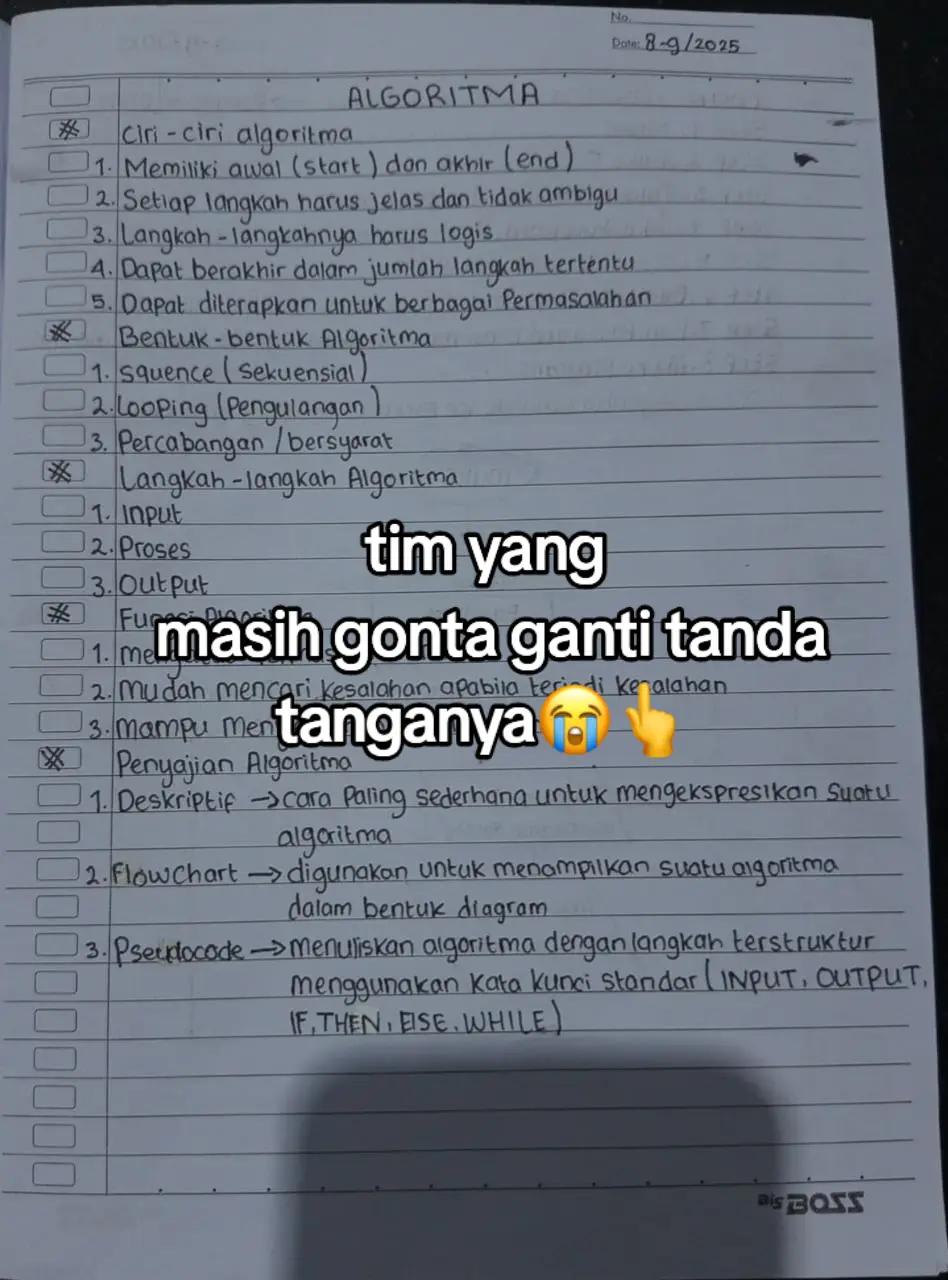 No.
Date: 8-9/2025
ALGORITMA
Ciri-ciri algoritma
1. Memiliki awal (start) dan akhir (end)
2. Setiap langkah harus jelas dan tidak ambigu
3. Langkah-langkahnya harus logis
4. Dapat berakhir dalam jumlah langkah tertentu
5. Dapat diterapkan untuk berbagai Permasalahan
Bentuk-bentuk Algoritma
1. squence (sekuensial)
2. Looping (Pengulangan)
3. Percabangan / bersyarat
Langkah-langkah Algoritma
1. Input
2. Proses
3. Output
tim yang
masih gonta ganti tanda
tanganya😭👆
Fungsi Algoritma
1.
2. Mudah mencari kesalahan apabila terjadi kesalahan
3. mampu
Penyajian Algoritma
1. Deskriptif → cara Paling sederhana untuk mengekspresikan suatu
algoritma
2. Flowchart → digunakan untuk menampilkan suatu algoritma
dalam bentuk diagram
3. Pseudocode → menuliskan algoritma dengan langkah terstruktur
menggunakan kata kunci standar (INPUT, OUTPUT,
IF, THEN, ELSE, WHILE)
Big BOSS